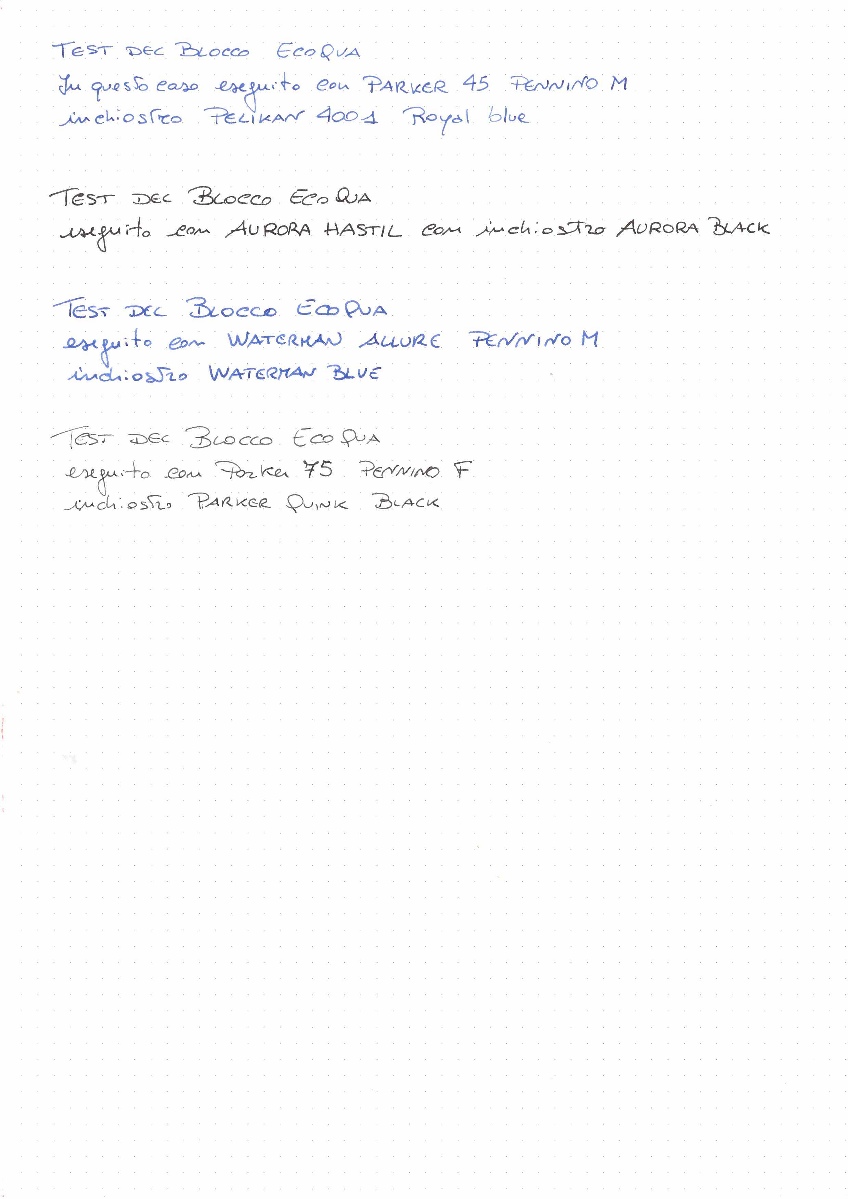 TEST DEL BLOCCO ECOQUA
In questo caso eseguito con PARKER 45 PENNINO M
inchiostro PELIKAN 4001 Royal blue
TEST DEL BLOCCO ECOQUA
eseguito con AURORA HASTIL con inchiostro AURORA BLACK
TEST DEL BLOCCO ECOQUA
eseguito con WATERMAN ALLURE PENNINO M
inchiostro WATERMAN BLUE
TEST DEL BLOCCO ECOQUA
eseguito con Parker 75 PENNINO F
inchiostro PARKER QUINK BLACK